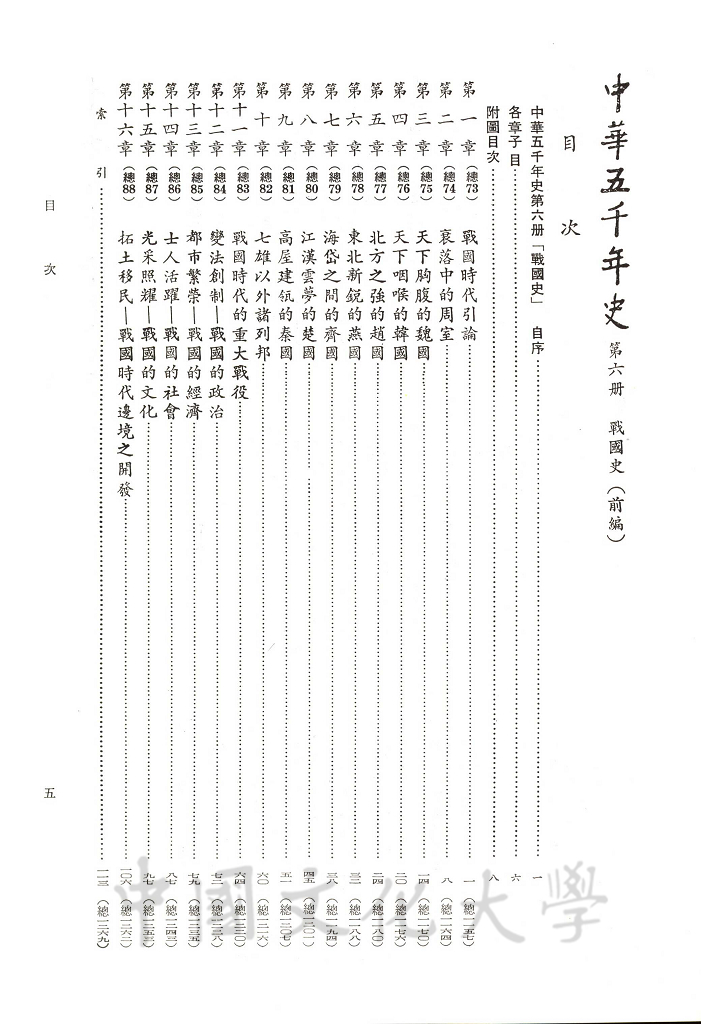 中華五千年史 第六册 戰國史（前編）
目次
中華五千年史第六册「戰國史」 自序……一
各章子目……六
附圖目次……八
第一章（總73） 戰國時代引論……一（總一一五七）
第二章（總74） 衰落中的周室……八（總一一六四）
第三章（總75） 天下胸腹的魏國……一四（總一一七〇）
第四章（總76） 天下咽喉的韓國……二〇（總一一七六）
第五章（總77） 北方之強的趙國……二四（總一一八〇）
第六章（總78） 東北新銳的燕國……三二（總一一八八）
第七章（總79） 海岱之間的齊國……三八（總一一九四）
第八章（總80） 江漢雲夢的楚國……四五（總一二〇一）
第九章（總81） 高屋建瓴的秦國……五一（總一二〇七）
第十章（總82） 七雄以外諸列邦……六〇（總一二一六）
第十一章（總83） 戰國時代的重大戰役……六四（總一二二〇）
第十二章（總84） 變法創制—戰國的政治……七二（總一二二八）
第十三章（總85） 都市繁榮—戰國的經濟……七九（總一二三五）
第十四章（總86） 士人活躍—戰國的社會……八七（總一二四三）
第十五章（總87） 光采照耀—戰國的文化……九七（總一二五三）
第十六章（總88） 拓土移民—戰國時代邊境之開發……一〇六（總一二六二）
索引……一一三（總一二六九）
目次 五
中國文化大學